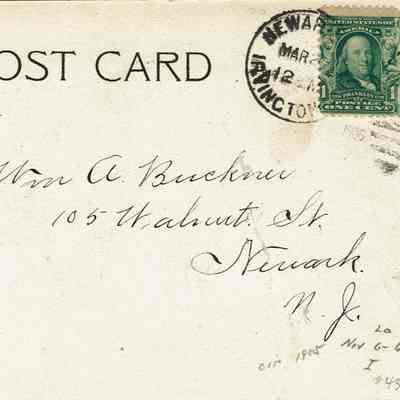 OST CARD
NEWAR
MAR 2
12
IRVINGTON
SERIES 1902
UNITED STATES OF
AMERICA
FRANKLIN
POSTAGE
1 ONE CENT 1
Wm A. Buckner
105 Walnut. St.
Newark.
N. J.
cir 1905
Nov 6-6
I